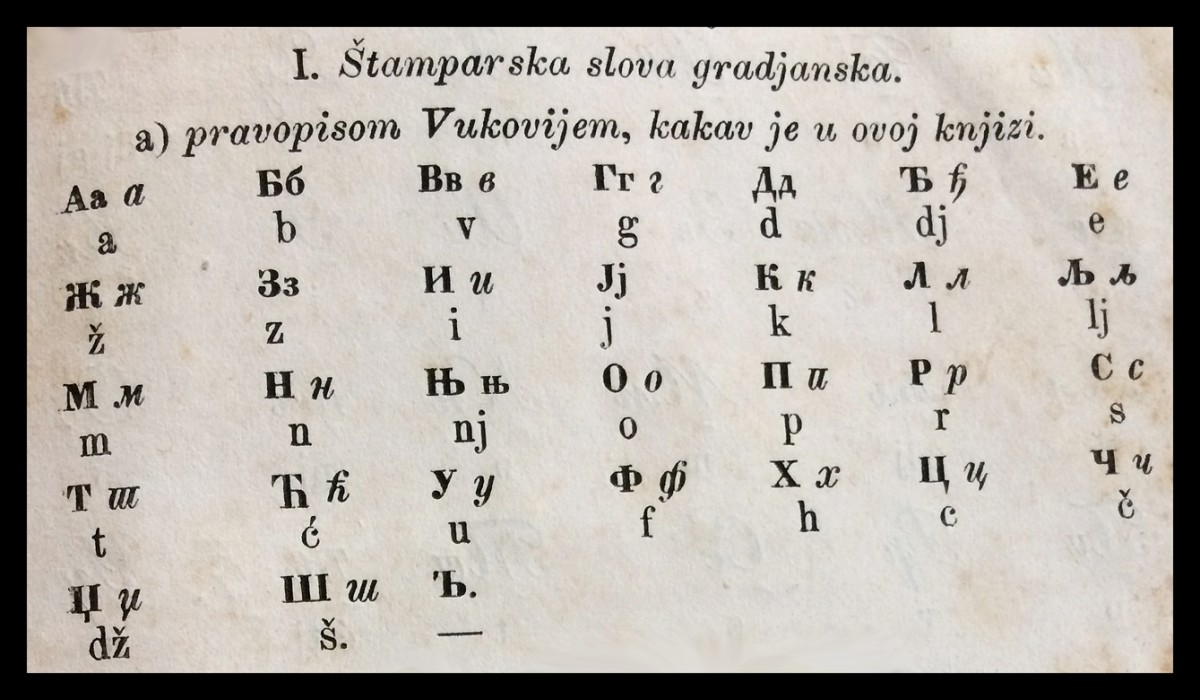 I. Štamparska slova gradjanska.
a) pravopisom Vukovijem, kakav je u ovoj knjizi.
Аа а Бб Вв в Гг г Дд Ђ ђ Е е
a b v g d dj e
Ж ж Зз И и Јј К к Л л Љ љ
ž z i j k l lj
М м Н н Њ њ О о П п Р р С с
m n nj o p r s
Т т Ћ ћ У у Ф ф Х х Ц ц Ч ч
t ć u f h c č
Џ џ Ш ш Ъ.
dž š. —